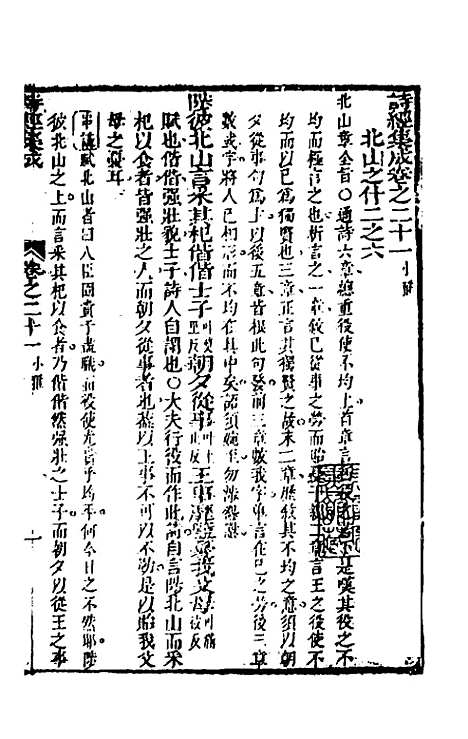 詩經集成卷之二十一 小雅
北山之什二之六
北山章全旨〇通詩六章總重役使不均上首章言是嘆其役之不
均而極言之也析言之一章敘已從事之勞而貽二章言王之役使不
均而以已爲獨賢也三章正言其獨賢之故末三章歷敘其不均之意須以朝
夕從事句爲主以後五意皆根此句發前三章嘆我字單言在已之勞後三章
數或字將人已相形而不均在其中矣語須婉至勿涉怨懟
陟彼北山言采其杞偕偕士子朝夕從事王事靡盬憂我父母
賦也偕偕强壯貌士子詩人自謂也〇大夫行役而作此詩自言陟北山而采
杞以食者皆强壯之人而朝夕從事者也蓋以王事不可以不勤是以貽我父
母之憂耳
講賦北山者曰人臣固貴于盡職而役使尤當乎均平何今日之不然耶陟
彼北山之上而言采其杞以食者乃偕偕然强壯之士子而朝夕以從王之事
詩經集成 卷之二十一 小雅 一